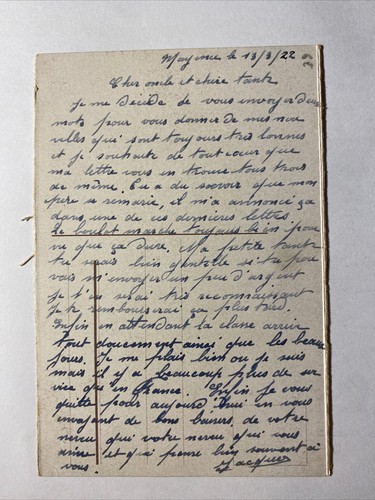 Mayence le 13/3/22
Cher oncle et chère tante
Je me décide de vous envoyer deux
mots pour vous donner de mes nou
velles qui sont toujours très bonnes
et je souhaite de tout cœur que
ma lettre vous en trouve tous trois
de même. Tu a du savoir que mon
père se remarie, il m'a annoncé ça
dans une de ces dernières lettres.
Le boulot marche toujours bien pour
vu que ça dure. Ma petite tante
tu serais bien gentille si tu pou
vais m'envoyer un peu d'argent
je t'en serai très reconnaissant
Je te rembourserai ça plus tard.
Enfin en attendant la classe arrive
tout doucement ainsi que les beaux
jours. Je me plais bien ou je suis
mais il y a beaucoup plus de ser
vice qu'en France. Enfin je vous
quitte pour aujourd'hui en vous
envoyant de bons baisers, de votre
neveu qui votre neveu qui vous
aime et qui pense bien souvent à
vous. Jacques